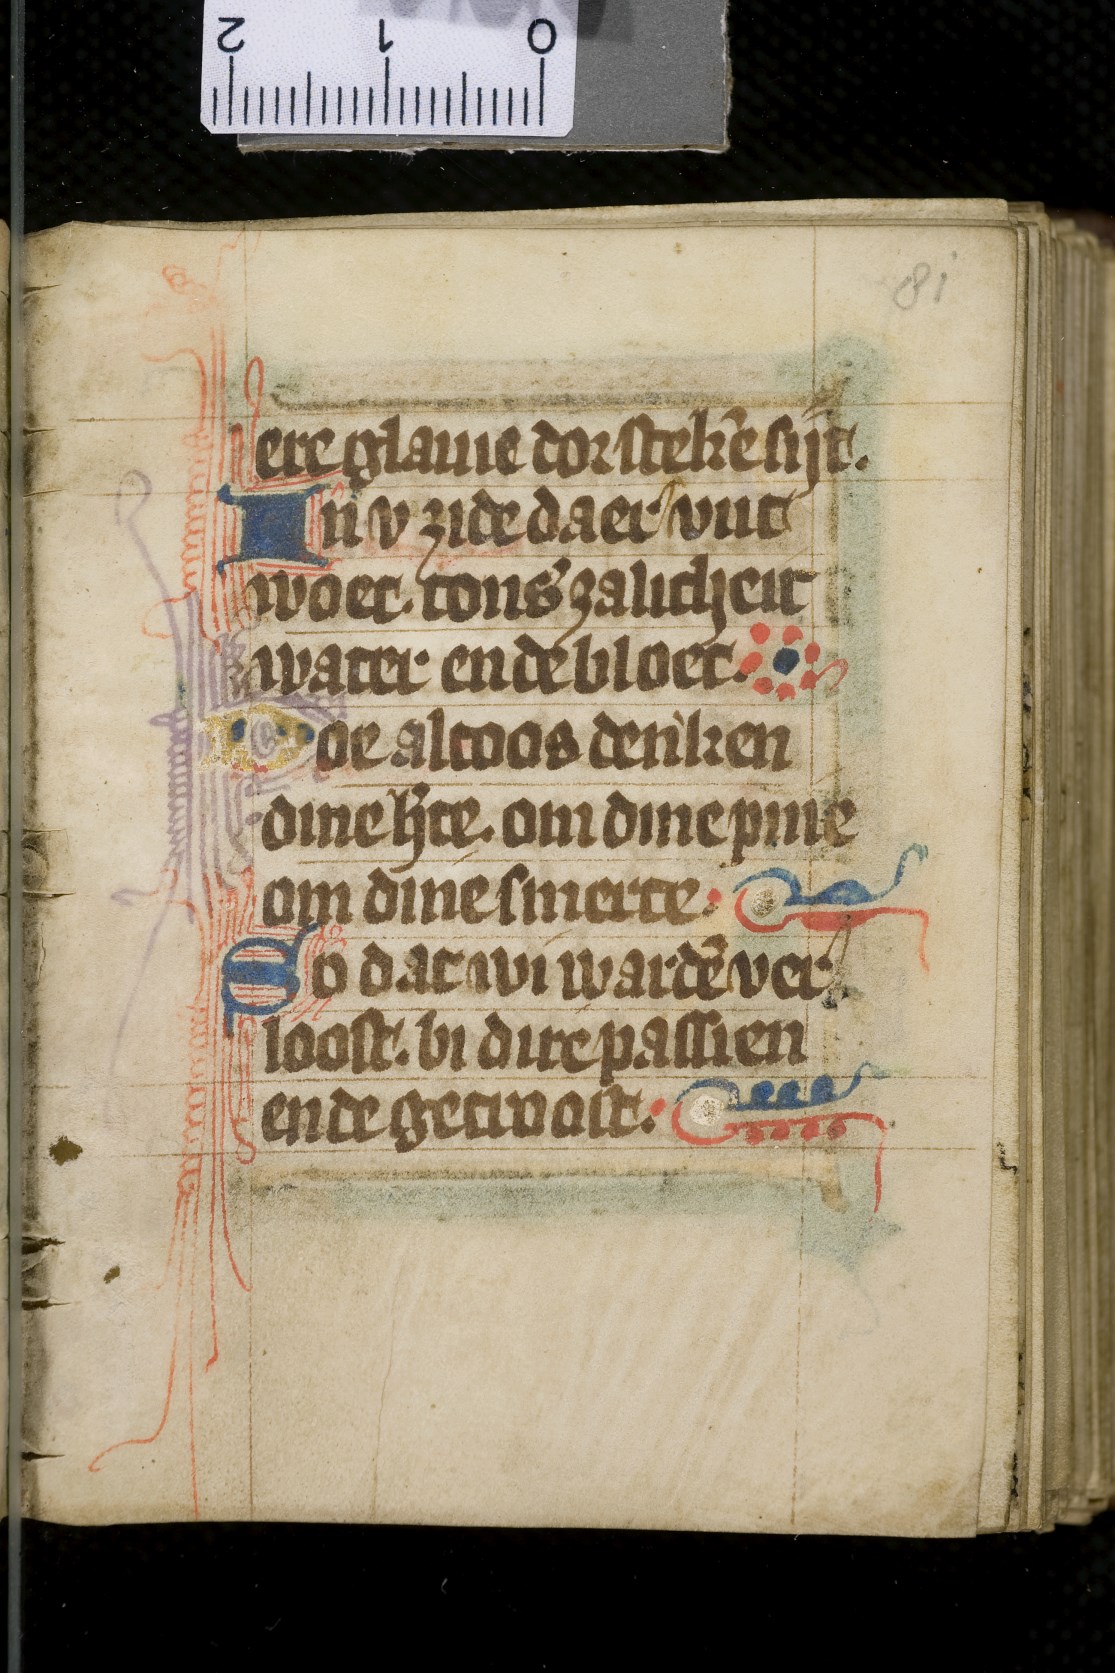 2 1 0
81
ere glauie dorstekē sijt.
In v zide daer vut
woet. tons zalicheit
water ende bloet.
Doe altoos denken
dine h̄te. om dine pine
om dine smerte.
So dat wi wardē ver
loost. bi dire passien
ende getroost.